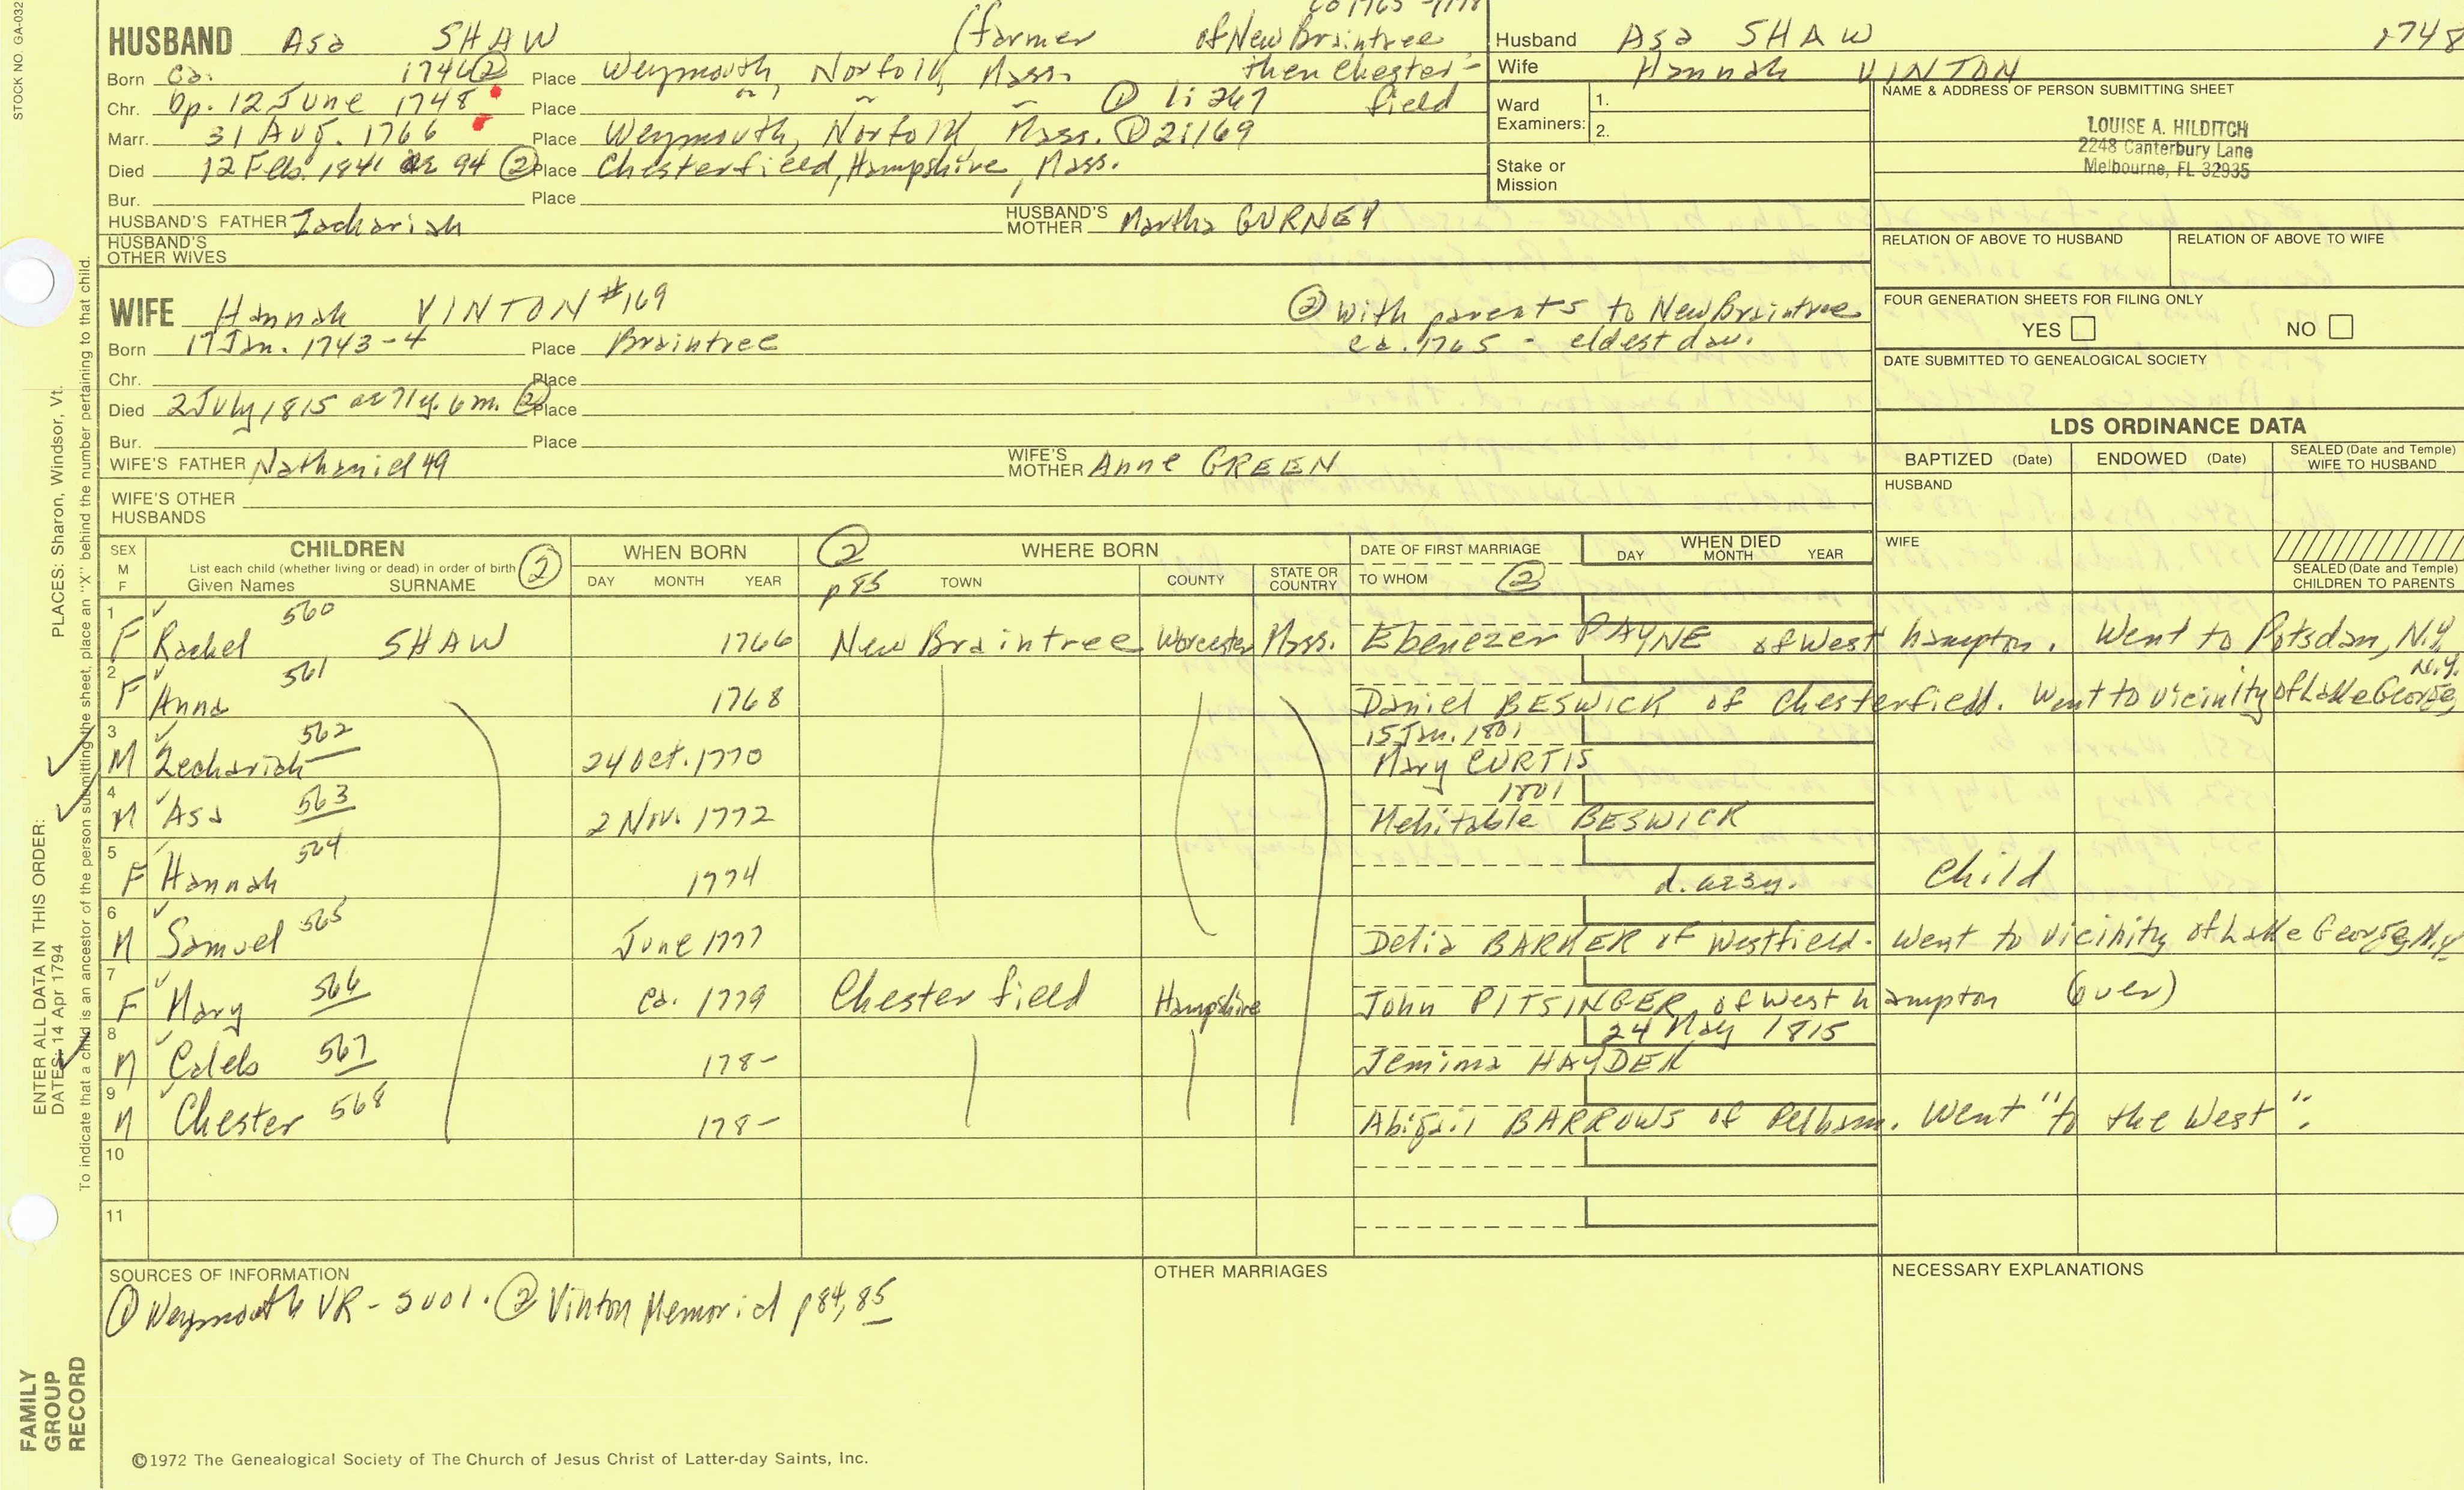 STOCK NO. GA-032
HUSBAND Asa SHAW (farmer of New Braintree
Born Ca. Place Weymouth, Norfolk, Mass. then Chester-
Chr. bp. 12 June 1748 Place " ~ ~ ① 1:267 field
Marr. 31 Aug. 1766 Place Weymouth, Norfolk Mass. ① 2:169
Died 12 Feb. 1841 ae 94 ② Place Chesterfield, Hampshire, Mass.
Bur. Place
HUSBAND'S FATHER Zachariah HUSBAND'S MOTHER Martha GURNEY
HUSBAND'S OTHER WIVES
WIFE Hannah VINTON #169 ② with parents to New Braintree
Born 17 Jan. 1743-4 Place Braintree ca. 1765 - eldest dau.
Chr. Place
Died 2 July 1815 ae 71 y. 6 m. ② Place
Bur. Place
WIFE'S FATHER Nathaniel 49 WIFE'S MOTHER Anne GREEN
WIFE'S OTHER HUSBANDS
Husband Asa SHAW 1748
Wife Hannah VINTON
Ward Examiners: 1.
2.
Stake or Mission
NAME & ADDRESS OF PERSON SUBMITTING SHEET
LOUISE A. HILDITCH
2248 Canterbury Lane
Melbourne, FL 32935
RELATION OF ABOVE TO HUSBAND RELATION OF ABOVE TO WIFE
FOUR GENERATION SHEETS FOR FILING ONLY
YES NO
DATE SUBMITTED TO GENEALOGICAL SOCIETY
LDS ORDINANCE DATA
BAPTIZED (Date) ENDOWED (Date) SEALED (Date and Temple) WIFE TO HUSBAND
HUSBAND
WIFE
SEALED (Date and Temple) CHILDREN TO PARENTS
SEX M F CHILDREN List each child (whether living or dead) in order of birth Given Names SURNAME ② WHEN BORN DAY MONTH YEAR ② p 85 WHERE BORN TOWN COUNTY STATE OR COUNTRY DATE OF FIRST MARRIAGE TO WHOM ② WHEN DIED DAY MONTH YEAR
1 F Rachel 560 SHAW 1766 New Braintree Worcester Mass. Ebenezer PAYNE of West hampton. Went to Potsdam, N.Y.
2 F Anna 561 1768 Daniel BESWICK of Chesterfield. Went to vicinity of Lake George, N.Y.
3 M Zechariah 562 24 Oct. 1770 15 Jan. 1801 Mary CURTIS
4 M Asa 563 2 Nov. 1772 1801 Mehitable BESWICK
5 F Hannah 564 1774 d. ae 3 y. Child
6 M Samuel 565 June 1777 Delia BARKER of Westfield. Went to vicinity of Lake George, N.Y.
7 F Mary 566 ca. 1779 Chesterfield Hampshire John PITSINGER of West hampton (over)
8 M Caleb 567 178- 24 May 1815 Jemima HAYDEN
9 M Chester 568 178- Abigail BARROWS of Pelham. Went "to the West".
10
11
SOURCES OF INFORMATION
① Weymouth VR - ② Vinton Memorial p 84, 85
OTHER MARRIAGES
NECESSARY EXPLANATIONS
©1972 The Genealogical Society of The Church of Jesus Christ of Latter-day Saints, Inc.
ENTER ALL DATA IN THIS ORDER: PLACES: Sharon, Windsor, Vt.
DATES: 14 Apr 1794
To indicate that a child is an ancestor of the person submitting the sheet, place an "X" behind the number pertaining to that child.
FAMILY GROUP RECORD